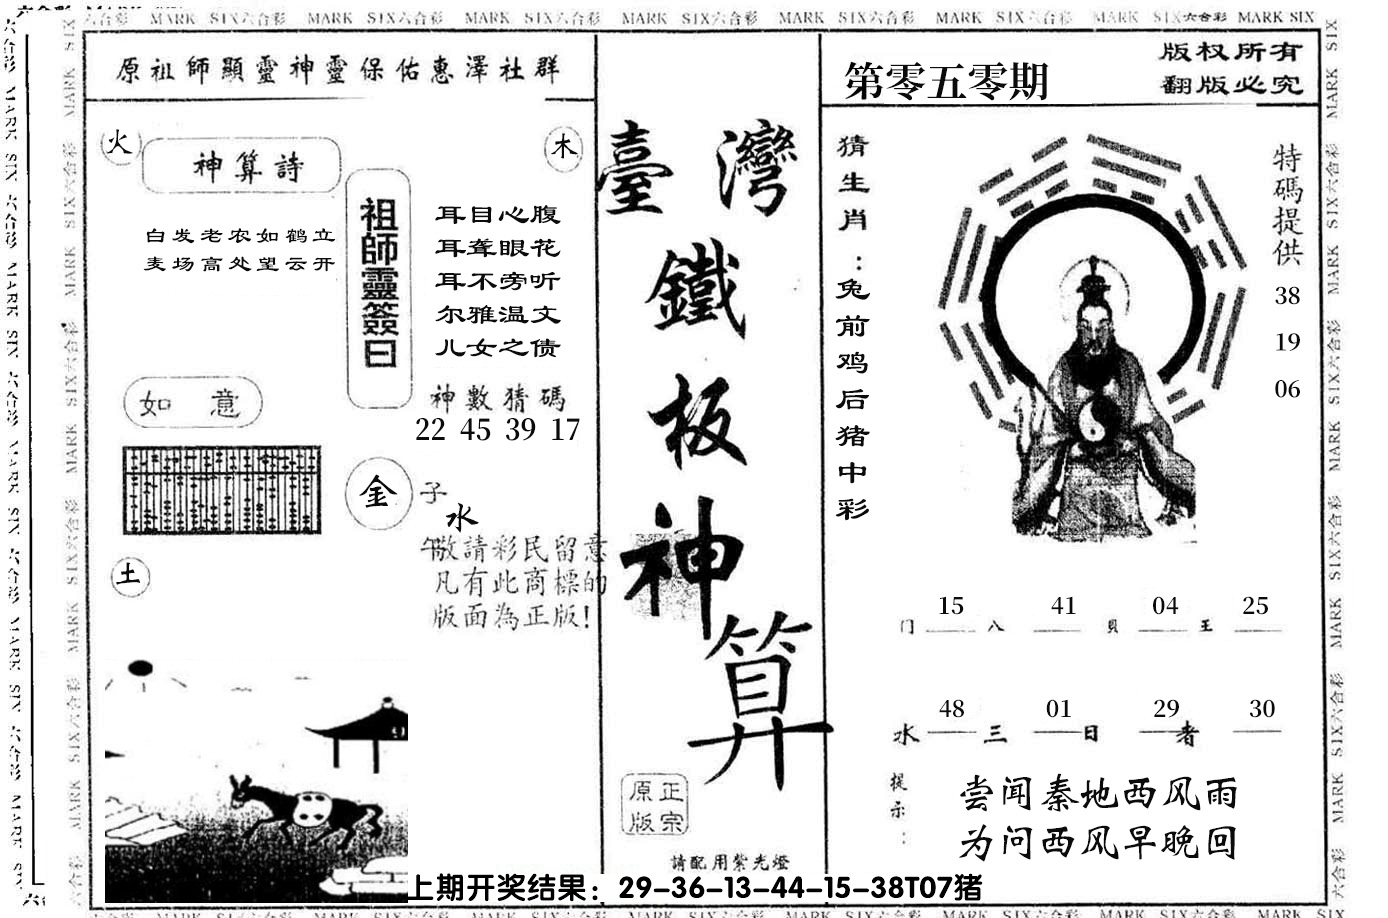 MARK SIX六合彩 MARK SIX六合彩 MARK SIX六合彩 MARK SIX六合彩 MARK SIX六合彩 MARK SIX六合彩 MARK SIX六合彩 MARK SIX
原祖師顯靈神靈保佑惠澤社群
火
神算詩
木
白发老农如鹤立
麦场高处望云开
祖師靈簽曰
耳目心腹
耳聋眼花
耳不旁听
尔雅温文
儿女之债
神數猜碼
22 45 39 17
如 意
金
子
水
午
敬請彩民留意
凡有此商標的
版面為正版!
土
臺灣
鐵
板
神
算
正宗
原版
請配用紫光燈
第零五零期
版权所有
翻版必究
猜生肖:兔前鸡后猪中彩
特碼提供
38
19
06
15 41 04 25
门 八 貝 王
48 01 29 30
水 三 日 者
提示:
尝闻秦地西风雨
为问西风早晚回
上期开奖结果：29-36-13-44-15-38T07猪